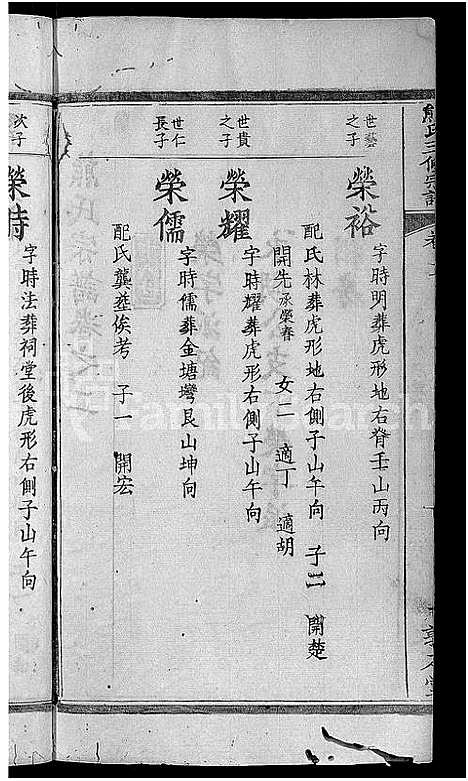 熊氏三修宗譜
世藝之子
榮裕
字時明葬虎形地右脊壬山丙向
配氏林葬虎形地右側子山午向 子二 開楚
開先承榮春 女二 適丁 適胡
世貴之子
榮耀
字時耀葬虎形右側子山午向
世仁長子
榮儒
字時儒葬金塘灣艮山坤向
配氏龔塟俟考 子一 開宏
次子
榮時
字時法葬祠堂後虎形右側子山午向
FamilySearch